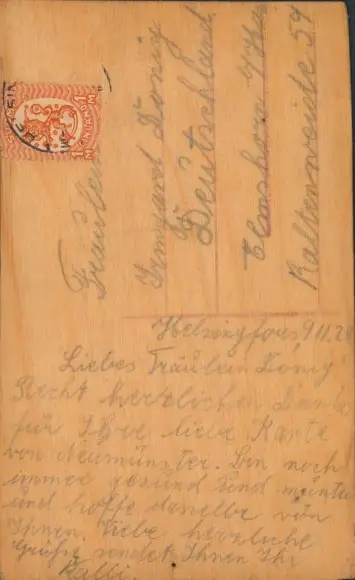 Fräulein
Irmgard König
Deutschland
Elmshorn
Kaltenweide 54
SUOMI FINLAND
1 M 1 M
Helsingfors 9.11.
Liebes Fräulein König
Recht herzlichen Dank
für Ihre liebe Karte
von Neumünster. Bin noch
immer gesund und munter
und hoffe dasselbe von
Ihnen. Liebe herzliche
Grüße sendet Ihnen Ihr